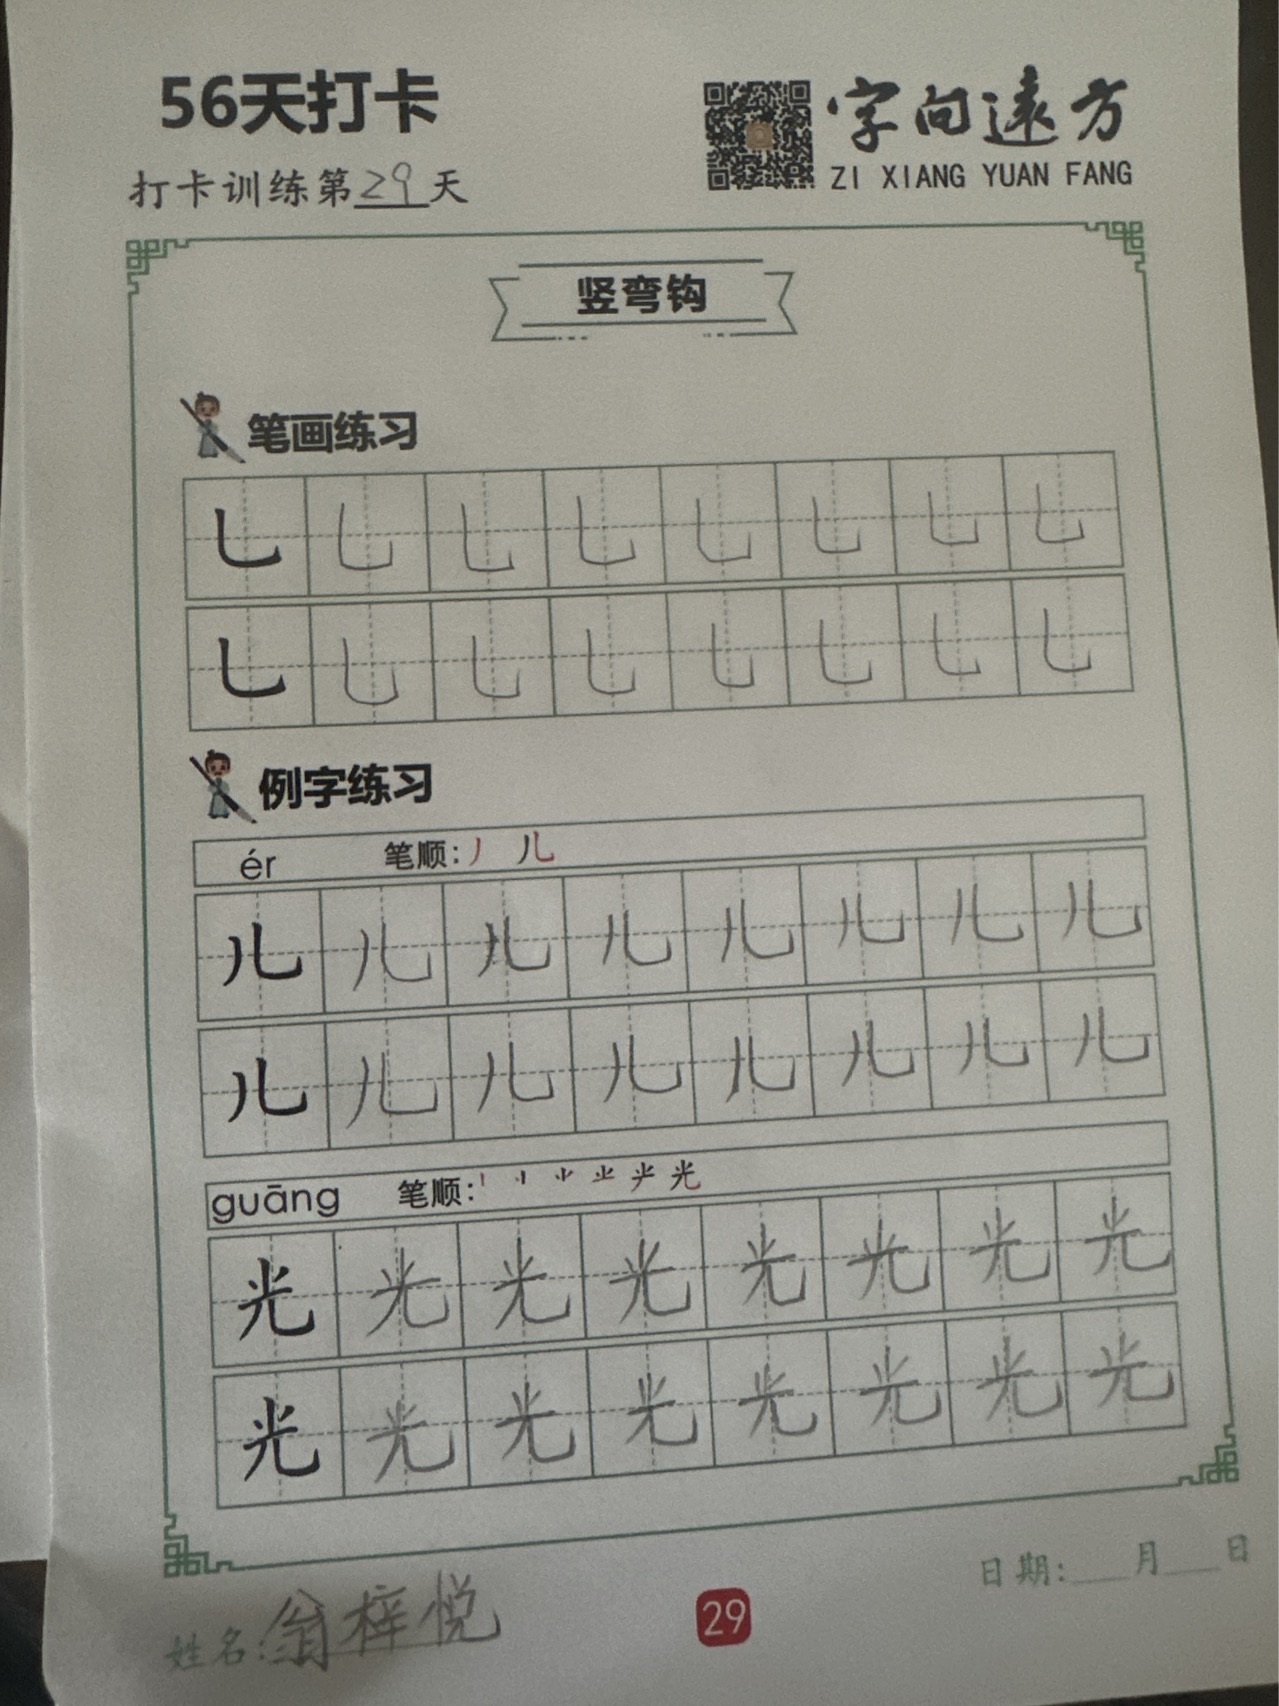 56天打卡
字向遠方
ZI XIANG YUAN FANG
打卡训练第29天
竖弯钩
笔画练习
乚 乚 乚 乚 乚 乚 乚 乚
乚 乚 乚 乚 乚 乚 乚 乚
例字练习
ér 笔顺: 丿 儿
儿 儿 儿 儿 儿 儿 儿 儿
儿 儿 儿 儿 儿 儿 儿 儿
guāng 笔顺: 光
光 光 光 光 光 光 光 光
光 光 光 光 光 光 光 光
日期: 月 日
姓名: 翁梓悦
29